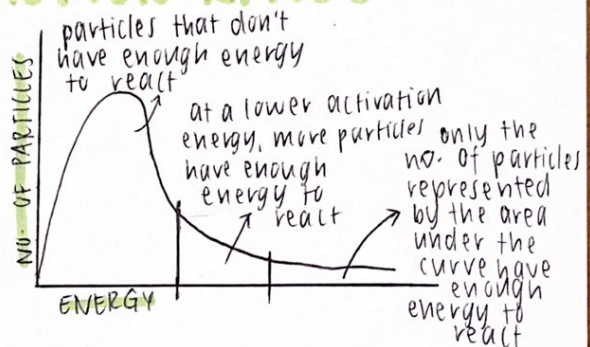 particles that don't
have enough energy
to react
at a lower activation
energy, more particles
have enough
energy to
react
only the
no. of particles
represented
by the area
under the
curve have
enough
energy to
react
NO. OF PARTICLES
ENERGY